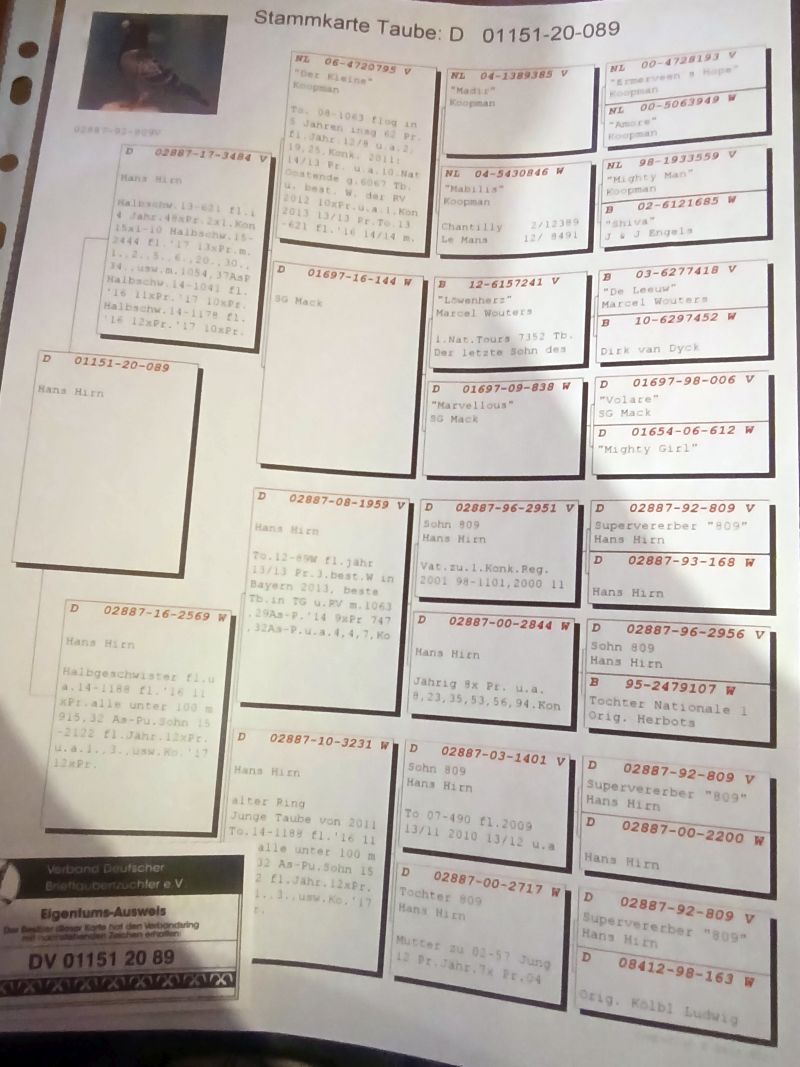 Stammkarte Taube: D 01151-20-089
02887-92-809V
D 02887-17-3484 V
Hans Hirn
Halbschw.13-621 fl.i
4 Jahr.48xPr.2x1.Kon
15x1-10 Halbschw.15-
2444 fl.'17 13xPr.m.
1.,2.,5.,6.,20.,30.,
34.,usw.m.1054,37AsP
Halbschw.14-1041 fl.
'16 11xPr.'17 10xPr.
Halbschw.14-1178 fl.
'16 12xPr.'17 10xPr.
D 01151-20-089
Hans Hirn
D 02887-16-2569 W
Hans Hirn
Halbgeschwister fl.u
a.14-1188 fl.'16 11
xPr.alle unter 100 m
915,32 As-Pu.Sohn 15
-2122 fl.Jähr.12xPr.
u.a.1.,3.,usw.Ko.'17
12xPr.
NL 06-4720795 V
"Der Kleine"
Koopman
To. 08-1063 flog in
5 Jahren insg 62 Pr.
fl.Jähr.12/8 u.a.2,
19,25.Konk. 2011:
14/13 Pr. u.a.10.Nat
Oostende g.6067 Tb.
u. best. W. der RV
2012 10xPr.u.a.1.Kon
2013 13/13 Pr.To.13
-621 fl.'16 14/14 m.
D 01697-16-144 W
SG Mack
D 02887-08-1959 V
Hans Hirn
To.12-89W fl.jähr
13/13 Pr.3.best.W in
Bayern 2013, beste
Tb.in TG u.RV m.1063
,29As-P.'14 9xPr 747
,32As-P.u.a.4,4,7,Ko
D 02887-10-3231 W
Hans Hirn
alter Ring
Junge Taube von 2011
To.14-1188 fl.'16 11
alle unter 100 m
32 As-Pu.Sohn 15
2 fl.Jähr.12xPr.
1.,3.,usw.Ko.'17
r.
NL 04-1389385 V
"Madir"
Koopman
NL 04-5430846 W
"Mabilis"
Koopman
Chantilly 2/12389
Le Mans 12/ 8491
B 12-6157241 V
"Löwenherz"
Marcel Wouters
1.Nat.Tours 7352 Tb.
Der letzte Sohn des
D 01697-09-838 W
"Marvellous"
SG Mack
D 02887-96-2951 V
Sohn 809
Hans Hirn
Vat.zu.1.Konk.Reg.
2001 98-1101,2000 11
D 02887-00-2844 W
Hans Hirn
Jährig 8x Pr. u.a.
8,23,35,53,56,94.Kon
D 02887-03-1401 V
Sohn 809
Hans Hirn
To 07-490 fl.2009
13/11 2010 13/12 u.a
D 02887-00-2717 W
Tochter 809
Hans Hirn
Mutter zu 02-57 Jung
12 Pr.Jähr.7x Pr.04
NL 00-4728193 V
"Ermerveen s Hope"
Koopman
NL 00-5063949 W
"Amore"
Koopman
NL 98-1933559 V
"Mighty Man"
Koopman
B 02-6121685 W
"Shiva"
J & J Engels
B 03-6277418 V
"De Leeuw"
Marcel Wouters
B 10-6297452 W
Dirk van Dyck
D 01697-98-006 V
"Volare"
SG Mack
D 01654-06-612 W
"Mighty Girl"
D 02887-92-809 V
Supervererber "809"
Hans Hirn
D 02887-93-168 W
Hans Hirn
D 02887-96-2956 V
Sohn 809
Hans Hirn
B 95-2479107 W
Tochter Nationale 1
Orig. Herbots
D 02887-92-809 V
Supervererber "809"
Hans Hirn
D 02887-00-2200 W
Hans Hirn
D 02887-92-809 V
Supervererber "809"
Hans Hirn
D 08412-98-163 W
Orig. Kölbl Ludwig
Verband Deutscher
Brieftaubenzüchter e.V.
Eigentums-Ausweis
Der Besitzer dieser Karte hat den Verbandsring
mit nachstehenden Zeichen erhalten:
DV 01151 20 89